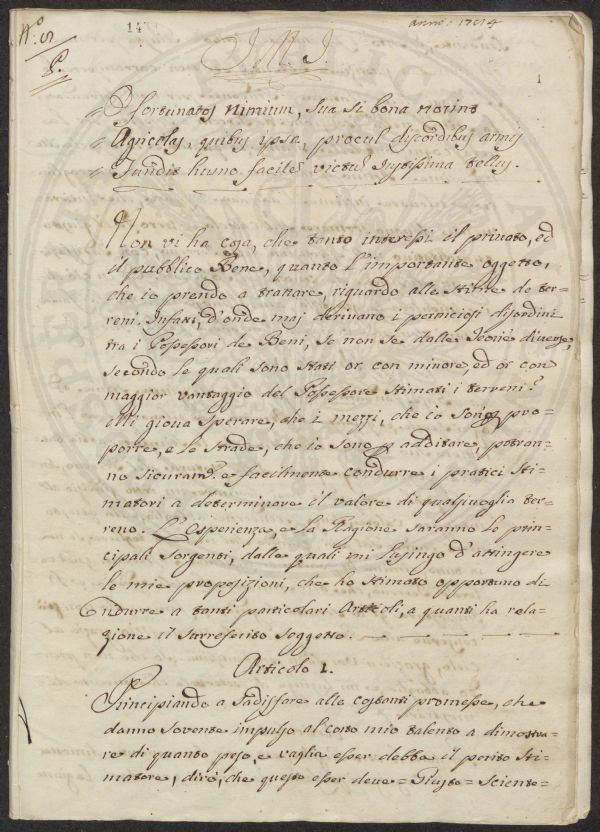 N.º 5
147
anno: 1784
1
J. M. J.
= O fortunatos nimium, sua si bona norint
= Agricolas, quibus ipsa, procul discordibus armis
= Fundit humo facilem victum Iustissima tellus.
Non vi ha cosa, che tanto interessi il privato, ed
il pubblico Bene, quanto l'importante oggetto,
che io prendo a trattare, riguardo alle stime de ter=
reni. Infatti, d'onde maj derivano i perniciosi disordini
tra i Possessori de Beni, se non se dalle Teorie diverse,
secondo le quali sono stati or con minore, ed or con
maggior vantaggio del Possessore stimati i terreni?
Mi giova sperare, che i mezzi, che io sono p pro=
porre, e le strade, che io sono p additare, potran=
no sicuram.e e facilmente condurre i pratici sti=
matori a determinare il valore di qualsivoglia ter=
reno. L'Esperienza, e la Ragione saranno le prin=
cipali sorgenti, dalle quali mi lusingo d'attingere
le mie proposizioni, che ho stimato opportuno di
ridurre a tanti particolari Articoli, a quanti ha rela=
zione il surreferito soggetto.
Articolo 1.
Principiando a sadisfare alle costanti promesse, che
danno sovente impulso al corto mio talento a dimostra=
re di quanto peso, e vaglia esser debba il perito sti=
matore, dirò, che questo esser deve = Giusto = Sciente =